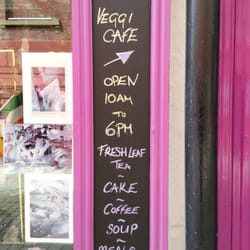 VEGGI
CAFE
OPEN
10AM
TO
6PM
FRESH LEAF
TEA
~
CAKE
~
COFFEE
~
SOUP
~
MEALS